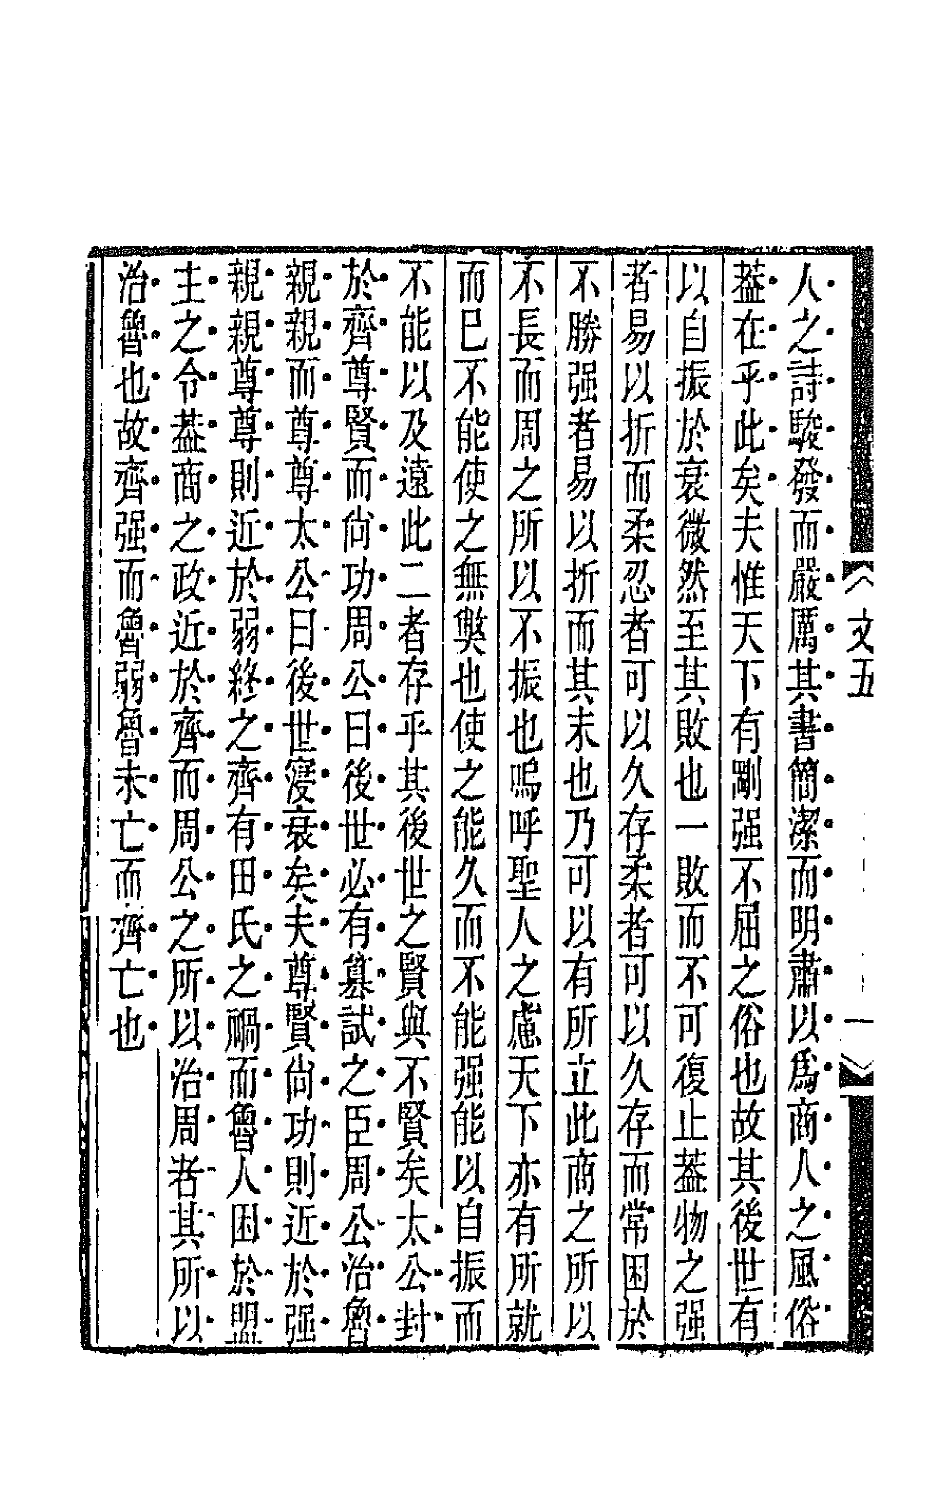 文五
一
人之詩駿發而嚴厲其書簡潔而明肅以爲商人之風俗
葢在乎此矣夫惟天下有剛强不屈之俗也故其後世有
以自振於衰微然至其敗也一敗而不可復止葢物之强
者易以折而柔忍者可以久存柔者可以久存而常困於
不勝强者易以折而其末也乃可以有所立此商之所以
不長而周之所以不振也嗚呼聖人之慮天下亦有所就
而已不能使之無獘也使之能久而不能强能以自振而
不能以及遠此二者存乎其後世之賢與不賢矣太公封
於齊尊賢而尙功周公曰後世必有簒弑之臣周公治魯
親親而尊尊太公曰後世寖衰矣夫尊賢尙功則近於强
親親尊尊則近於弱終之齊有田氏之禍而魯人困於盟
主之令葢商之政近於齊而周公之所以治周者其所以
治魯也故齊强而魯弱魯未亡而齊亡也